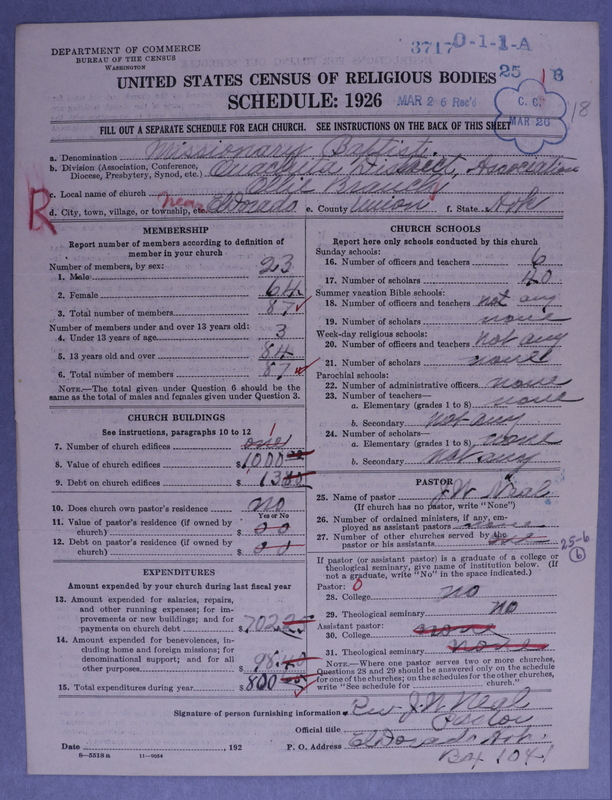 DEPARTMENT OF COMMERCE
BUREAU OF THE CENSUS
WASHINGTON
3717 0-1-1-A
UNITED STATES CENSUS OF RELIGIOUS BODIES
25 18
SCHEDULE: 1926
MAR 26 Rec'd
C. C.
MAR 26
18
FILL OUT A SEPARATE SCHEDULE FOR EACH CHURCH. SEE INSTRUCTIONS ON THE BACK OF THIS SHEET
a. Denomination Missionary Baptist
b. Division (Association, Conference, Diocese, Presbytery, Synod, etc.) District Association
c. Local name of church Branch
R
d. City, town, village, or township, etc. near Eldorado e. County Union f. State Ark
MEMBERSHIP
Report number of members according to definition of
member in your church
Number of members, by sex:
1. Male 23
2. Female 64
3. Total number of members 87
Number of members under and over 13 years old:
4. Under 13 years of age 3
5. 13 years old and over 84
6. Total number of members 87
NOTE.—The total given under Question 6 should be the
same as the total of males and females given under Question 3.
CHURCH BUILDINGS
See instructions, paragraphs 10 to 12
7. Number of church edifices one
8. Value of church edifices $1,000
9. Debt on church edifices $
10. Does church own pastor's residence? no
Yes or No
11. Value of pastor's residence (if owned by
church) $ 00
12. Debt on pastor's residence (if owned by
church) $ 00
EXPENDITURES
Amount expended by your church during last fiscal year
13. Amount expended for salaries, repairs,
and other running expenses; for im-
provements or new buildings; and for
payments on church debt $702
14. Amount expended for benevolences, in-
cluding home and foreign missions; for
denominational support; and for all
other purposes 98.40
15. Total expenditures during year $800
CHURCH SCHOOLS
Report here only schools conducted by this church
Sunday schools:
16. Number of officers and teachers 6
17. Number of scholars 40
Summer vacation Bible schools:
18. Number of officers and teachers not any
19. Number of scholars none
Week-day religious schools:
20. Number of officers and teachers not any
21. Number of scholars none
Parochial schools:
22. Number of administrative officers none
23. Number of teachers—
a. Elementary (grades 1 to 8) none
b. Secondary not any
24. Number of scholars—
a. Elementary (grades 1 to 8) none
b. Secondary not any
PASTOR
25. Name of pastor J. W. Neal
(If church has no pastor, write "None")
26. Number of ordained ministers, if any, em-
ployed as assistant pastors none
27. Number of other churches served by the
pastor or his assistants
25-6
6
If pastor (or assistant pastor) is a graduate of a college or
theological seminary, give name of institution below. (If
not a graduate, write "No" in the space indicated.)
Pastor: 0
28. College no
29. Theological seminary no
Assistant pastor:
30. College none
31. Theological seminary none
NOTE.—Where one pastor serves two or more churches,
Questions 28 and 29 should be answered only on the schedule
for one of the churches; on the schedules for the other churches,
write "See schedule for church."
Signature of person furnishing information Rev J. W. Neal
Official title Pastor
Date , 192 P. O. Address Eldorado Ark.
8-5518a 11-9054
Box 1041